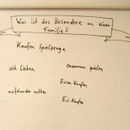 Was ist das Besondere an einer
Familie?
Kaufen Spielzeug
sich lieben zusammen spielen
Essen Kaufen
aufeinander achten
Eis Kaufen